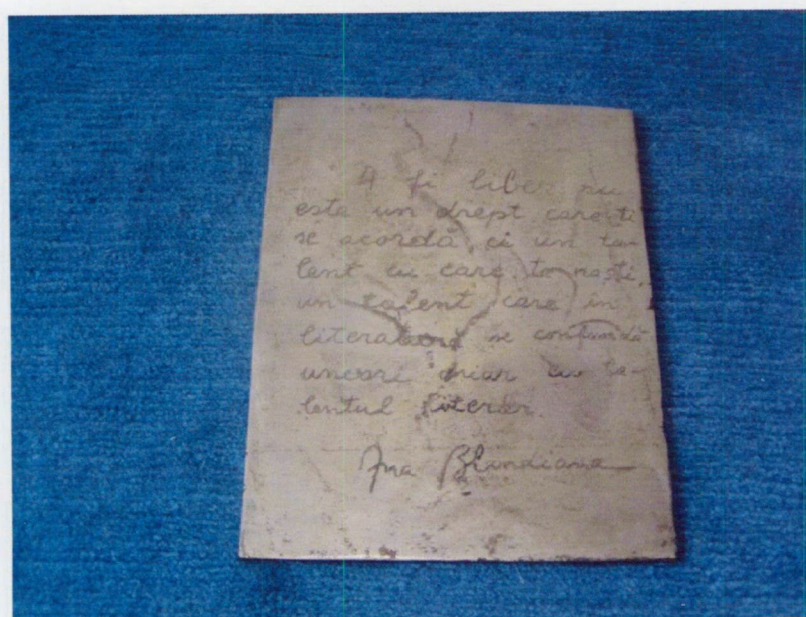 A fi liber nu
este un drept care ti
se acordă, ci un ta-
lent cu care te naști,
un talent care în
literatură se confundă
uneori chiar cu ta-
lentul literar.
Ana Blandiana